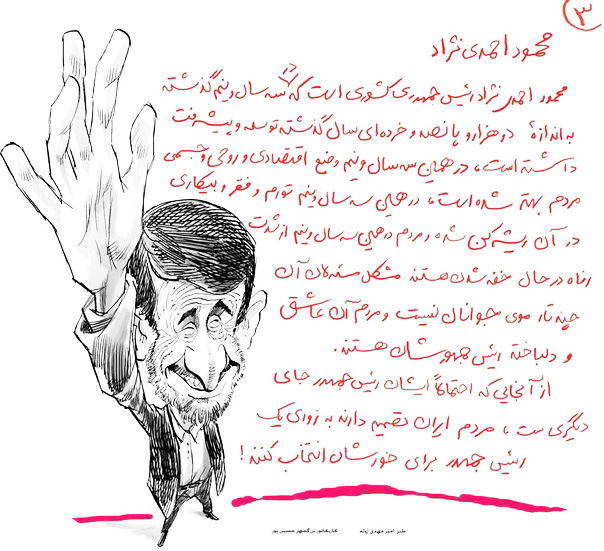 ۳
محمود احمدی نژاد
محمود احمدی نژاد رئیس جمهوری کشوری است که در سه سال و نیم گذشته
به اندازهٔ دو هزار و پانصد و خرده ای سال گذشته توسعه و پیشرفت
داشته است، در همین سه سال و نیم وضع اقتصادی و روحی و جسمی
مردم بهتر شده است، در همین سه سال و نیم تورم و فقر و بیکاری
در آن ریشه کن شده و مردم در همین سه سال و نیم از شدت
رفاه در حال خفه شدن هستند. مشکل مسئولان آن
چند تار موی جوانان نیست و مردم آن عاشق
و دلباخته رئیس جمهورشان هستند.
از آنجایی که احتمالاً ایشان رئیس جمهور جای
دیگری ست، مردم ایران تصمیم دارند به زودی یک
رئیس جمهور برای خودشان انتخاب کنند!
طنز: امیر مهدی ژوله
کاریکاتور: بزرگمهر حسین پور